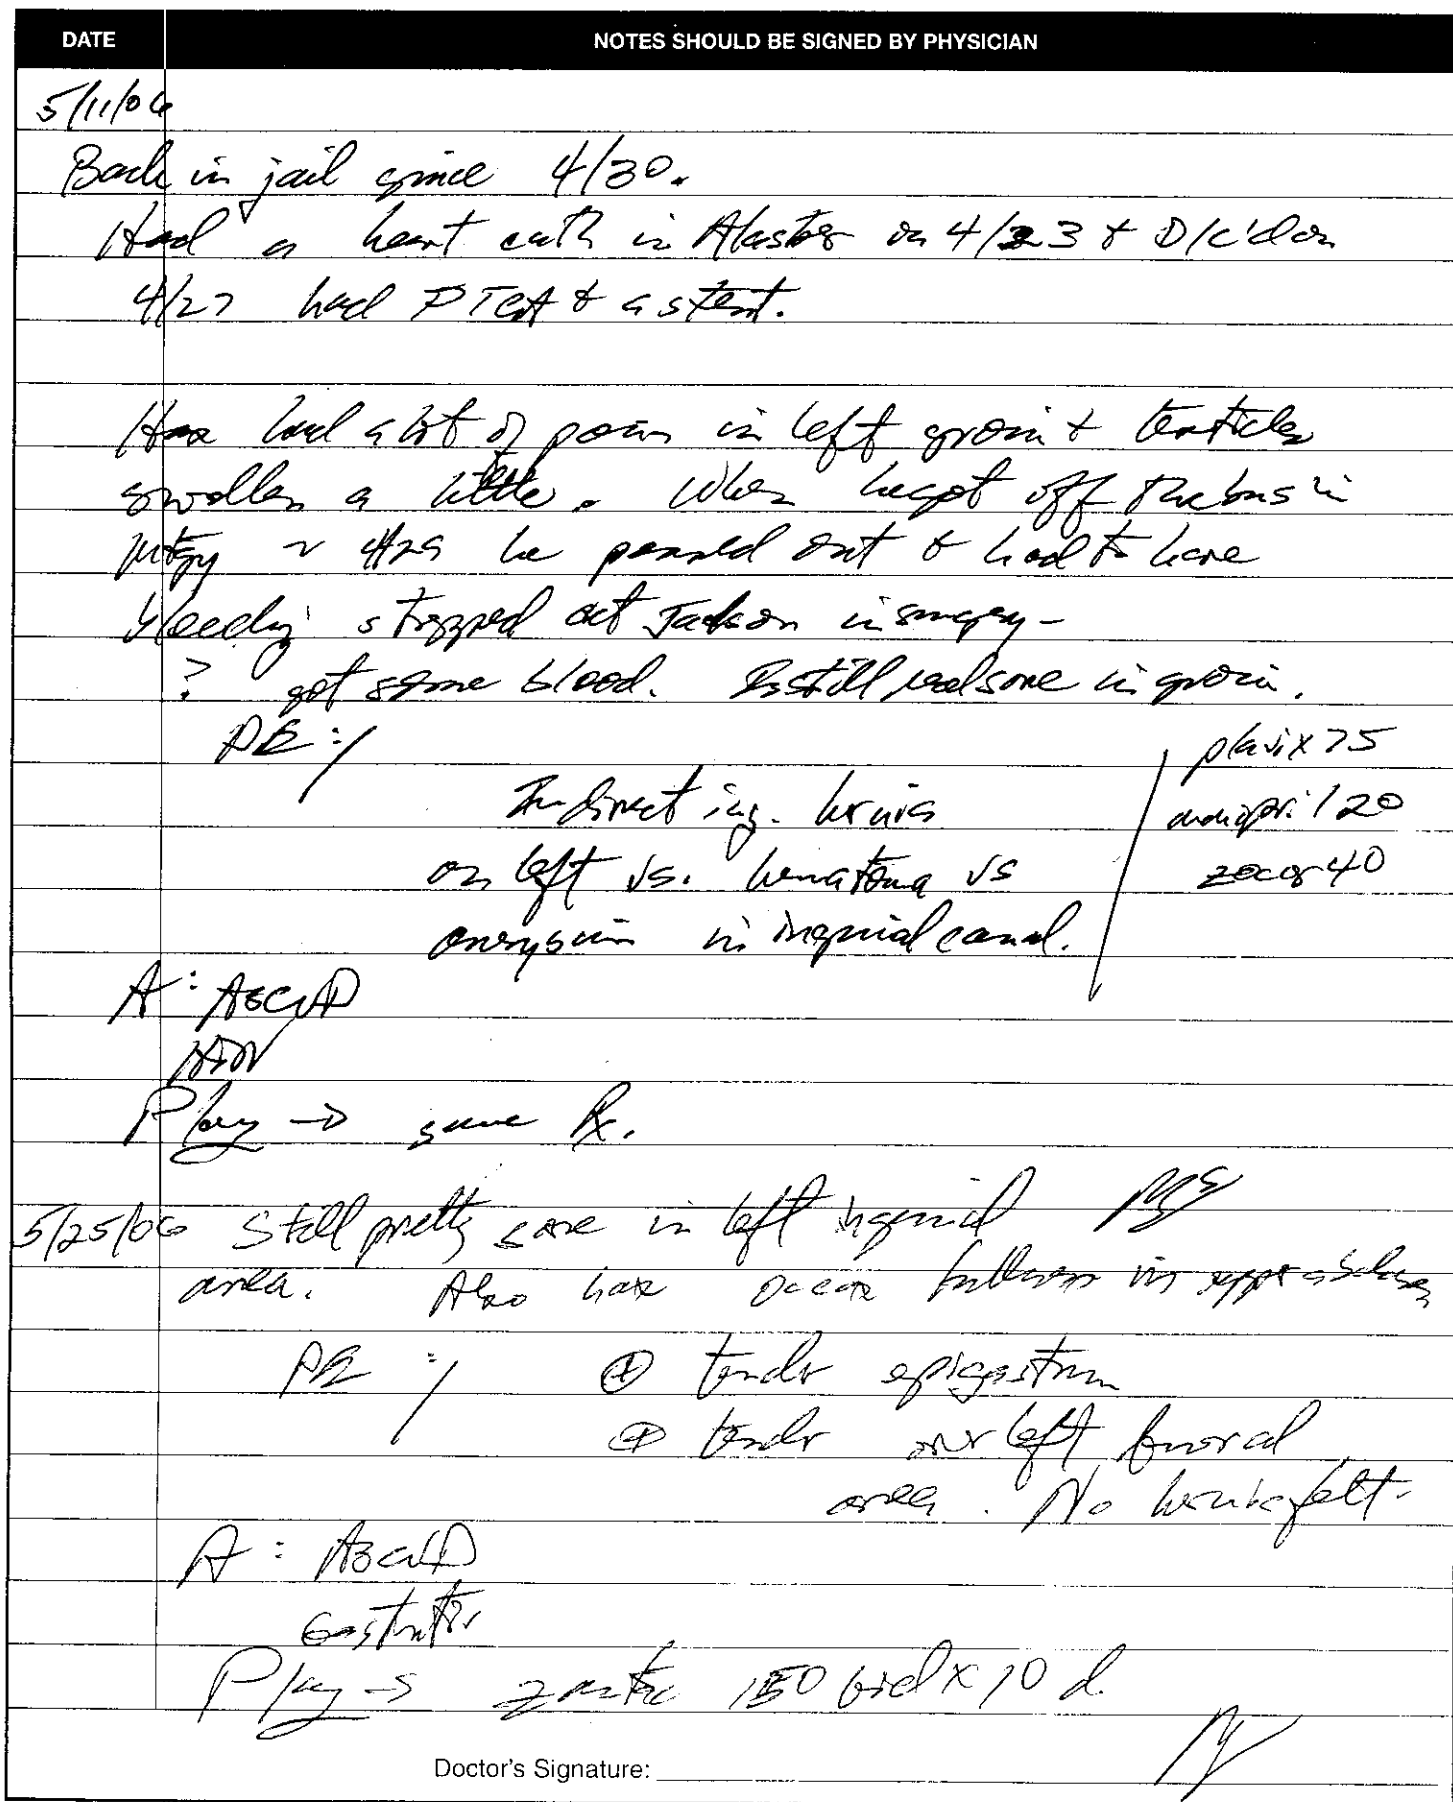 DATE NOTES SHOULD BE SIGNED BY PHYSICIAN
5/11/06
Back in jail since 4/30.
Had a heart cath in Alaster on 4/23 & D/c'd on
4/27 had PTCA & a stent.
Has had a lot of pain in left groin & testicles
swollen a little. When he got off the bus in
Mtgy ~ 4/29 he passed out & had to have
bleeding stopped at Jackson in surgery -
? got some blood. Is still real sore in groin.
PE :/ plavix 75
Indirect ing. hernia 20
on left vs. hematoma vs zocor 40
aneurysm in inguinal canal.
A: ASCVD
HTN
Plan → same Rx.
5/25/06 Still pretty sore in left inguinal
area. Also has fullness in upper abdomen
PE :/ ⊕ tender epigastrum
⊕ tender over left femoral
area. No hernia felt.
A: ASCVD
Gastritis
Plan → zantac 150 bid x 10 d.
Doctor's Signature: